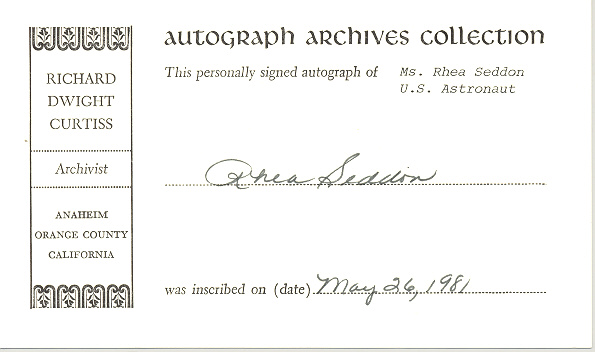 AUTOGRAPH ARCHIVES COLLECTION
RICHARD
DWIGHT
CURTISS
Archivist
ANAHEIM
ORANGE COUNTY
CALIFORNIA
This personally signed autograph of Ms. Rhea Seddon
U.S. Astronaut
Rhea Seddon
was inscribed on (date) May 26, 1981